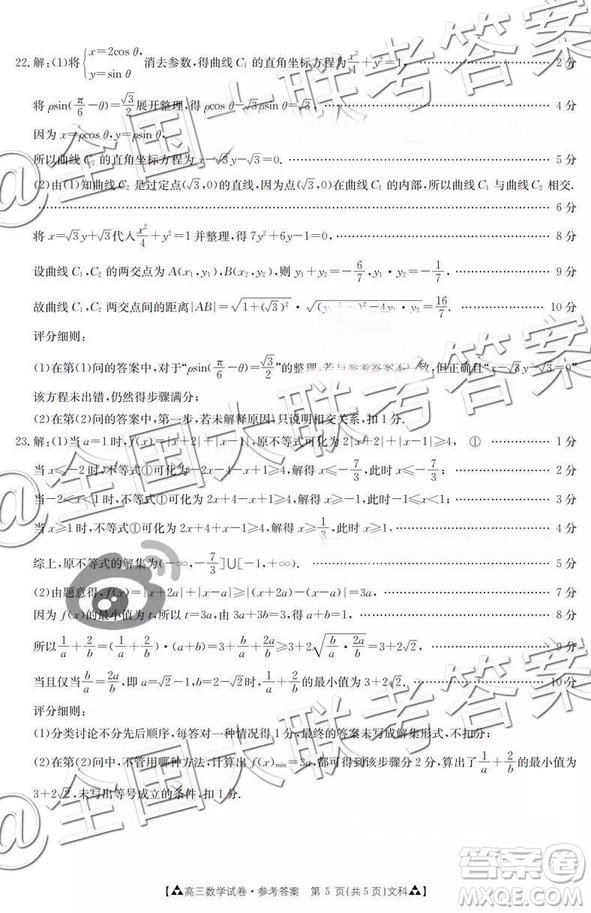 22.解:(1)将{x=2cos θ, y=sin θ 消去参数,得曲线 C₁ 的直角坐标方程为x²/4+y²=1, …… 2分
将 ρsin(π/6-θ)=√3/2展开整理,得 ρcos θ-√3ρsin θ=√3, …… 4分
因为 x=ρcos θ,y=ρsin θ,
所以曲线 C₂ 的直角坐标方程为 x-√3y-√3=0. …… 5分
(2)由(1)知曲线 C₂ 是过定点(√3,0)的直线,因为点(√3,0)在曲线 C₁ 的内部,所以曲线 C₁ 与曲线 C₂ 相交.
…… 6分
将 x=√3y+√3代入x²/4+y²=1并整理,得 7y²+6y-1=0, …… 8分
设曲线 C₁,C₂ 的两交点为 A(x₁,y₁),B(x₂,y₂),则 y₁+y₂=-6/7,y₁·y₂=-1/7, …… 9分
故曲线 C₁,C₂ 两交点间的距离|AB|=√(1+(√3)²)·√((y₁+y₂)²-4y₁·y₂)=16/7. …… 10分
评分细则:
(1)在第(1)问的答案中,对于“ρsin(π/6-θ)=√3/2”的整理,若与参考答案不一致,但正确得出“x-√3y-√3=0”
该方程未出错,仍然得步骤满分;
(2)在第(2)问的答案中,第一步,若未解释原因,只说明相交关系,扣 1 分.
23.解:(1)当 a=1时,f(x)=|x+2|+|x-1|
当 x≤-2 时,不等式①可化为-2x-4-x+1≥4,解得 x≤-7/3,此时 x≤-7/3; …… 2分
当-2<x<1时,不等式①可化为 2x+4-x+1≥4,解得 x≥-1,此时-1≤x<1; …… 3分
当 x≥1 时,不等式①可化为 2x+4+x-1≥4,解得 x≥1/3,此时 x≥1, …… 4分
综上,原不等式的解集为(-∞,-7/3]∪[-1,+∞). …… 5分
(2)由题意得,f(x)=|x+2a|+|x-a|≥|(x+2a)-(x-a)|=3a, …… 7分
因为 f(x)的最小值为 t,所以 t=3a,由 3a+3b=3,得 a+b=1, …… 8分
所以1/a+2/b=(1/a+2/b)·(a+b)=3+b/a+2a/b≥3+2√(b/a·2a/b)=3+2√2,
当且仅当b/a=2a/b,即 a=√2-1,b=2-√2时,1/a+2/b的最小值为 3+2√2. …… 10分
评分细则:
(1)分类讨论不分先后顺序,每答对一种情况得 1 分,最终的答案未写成解集形式,不扣分;
(2)在第(2)问中,不管用哪种方法,计算出 f(x)min=3a,即可得到该步骤分 2 分,算出了1/a+2/b的最小值为
3+2√2,未写出等号成立的条件,扣 1 分.
高三数学试卷·参考答案 第 5 页(共 5 页)文科
@全国大联考答案
答案圈
MXQE.COM